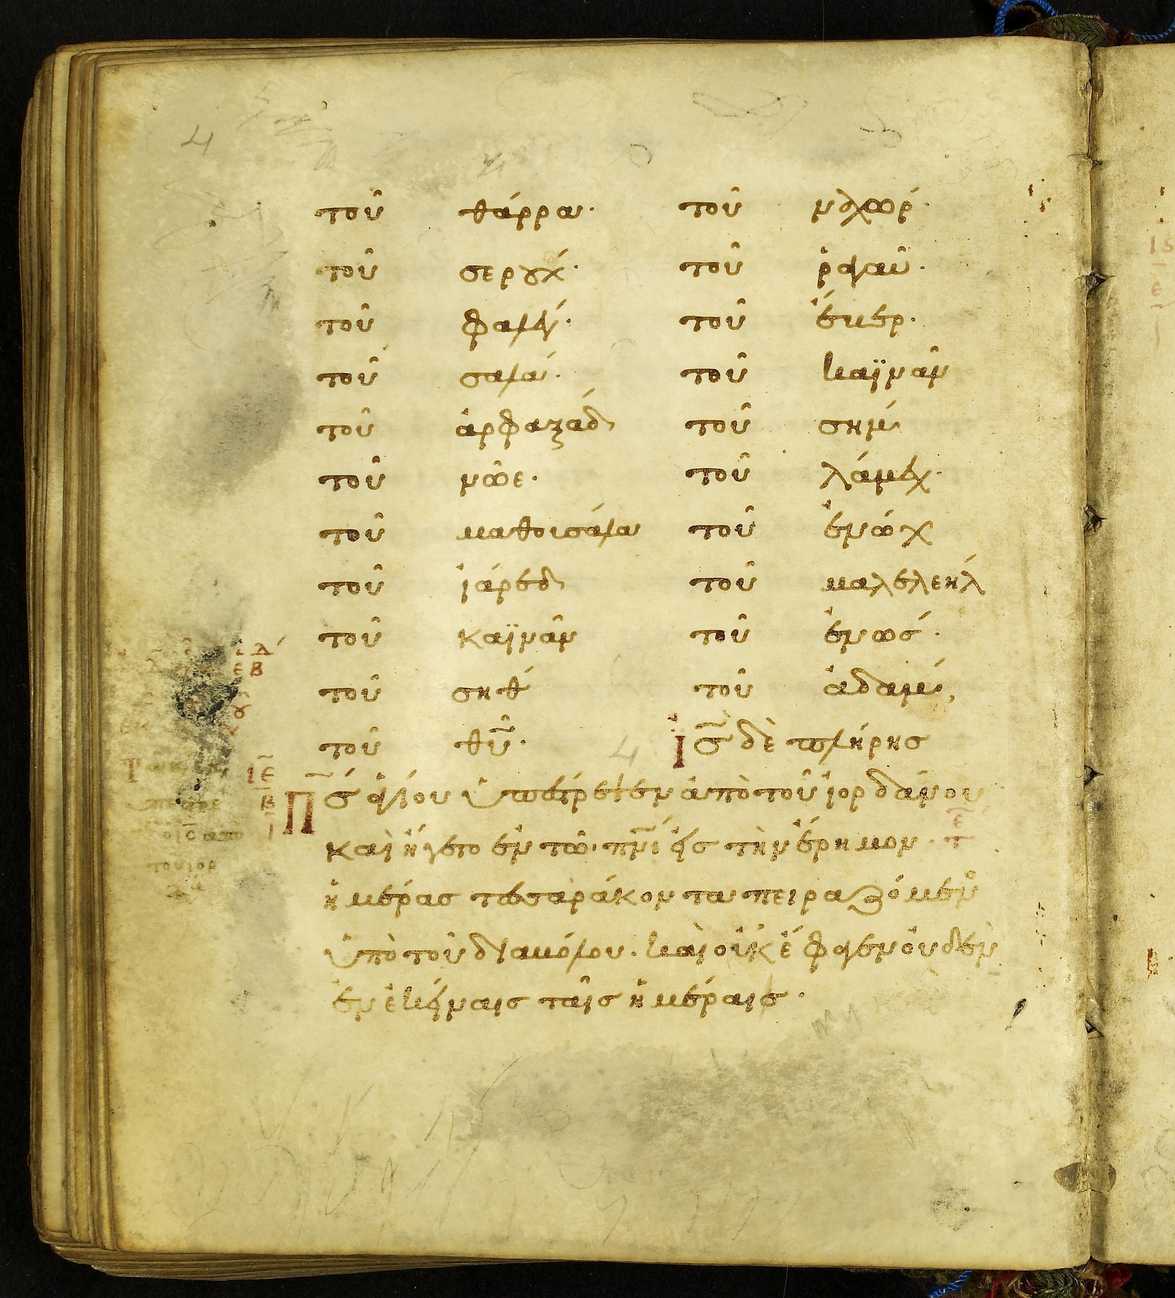 4
τοῦ θάρρα· τοῦ ναχώρ·
τοῦ σερούχ· τοῦ ῥαγαῦ·
τοῦ φαλέγ· τοῦ ἔβερ·
τοῦ σαλά· τοῦ καϊνᾶν
τοῦ ἀρφαξάδ τοῦ σήμ
τοῦ νῶε· τοῦ λάμεχ·
τοῦ μαθουσάλα τοῦ ἐνώχ
τοῦ ἰάρεδ τοῦ μαλελεὴλ
τοῦ καϊνᾶν τοῦ ἐνώσ·
τοῦ σήθ τοῦ ἀδάμ,
τοῦ θυ· ις δὲ πλήρησ
πς ἁγίου ὑπέστρεψεν ἀπὸ τοῦ ἰορδάνου
καὶ ἤγετο ἐν τῶ· πνι εἰς τὴν ἔρημον·
ἡμέρας τεσσαράκοντα πειραζόμενο
ὑπὸ τοῦ διαβόλου· καὶ οὐκ ἔφαγεν οὐδὲν
ἐν ἐκείναις ταῖς ἡμέραις·